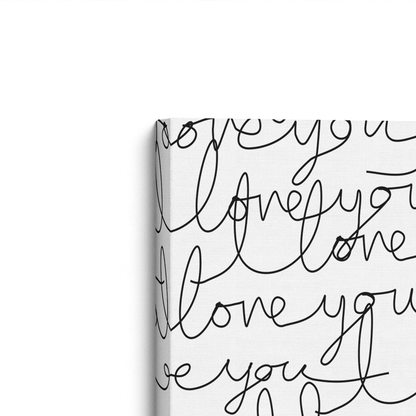 love you
I love you
I love
I love you
ve you I